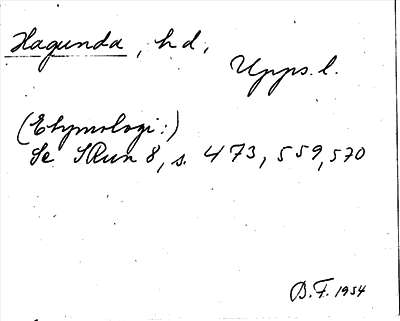 Hagunda, hd,
Upps. l.
(Etymologi:)
Se SRun 8, s. 473, 559, 570
B.F. 1954